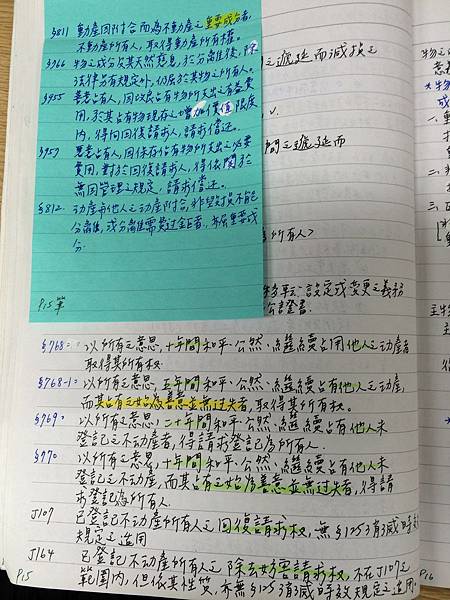 §811 動產因附合而為不動產之重要成分者,
不動產所有人,取得動產所有權。
§766 物之成分及其天然孳息,於分離後,除
法律另有規定外,仍屬於其物之所有人。
§955 善意占有人,因改良占有物所支出之有益費
用,於其占有物現存之增加價值限度
內,得向回復請求人,請求償還。
§957 惡意占有人,因保存占有物所支出之必要
費用,對於回復請求人,得依關於
無因管理之規定,請求償還。
§812. 動產與他人之動產附合,非毀損不能
分離,或分離需費過鉅者,
分.
P15 筆
之遞延而減損之
間之遞延而
所有人?
設定或變更之義務
公證書.
§768= 以所有之意思,十年間和平、公然、繼續占有他人之動產者
取得其所有权.
§768-1= 以所有之意思,五年間和平、公然、繼續占有他人之動產,
而其占有之始為善意並無过失者,取得其所有权。
§769. 以所有之意思,二十年間和平、公然、繼續占有他人未
登記之不動產者,得請求登記為所有人.
§770 以所有之意思,十年間和平、公然、繼續占有他人未
登記之不動產,而其占有之始為善意並無过失者,得請
求登記為所有人.
J107 已登記不動產所有人之回復請求权,無§125消滅時效
規定之適用
J164 已登記不動產所有人之除去妨害請求权,不在J107之
範圍內,但依其性質,亦無§125消滅時效規定之適用.
P15
P16